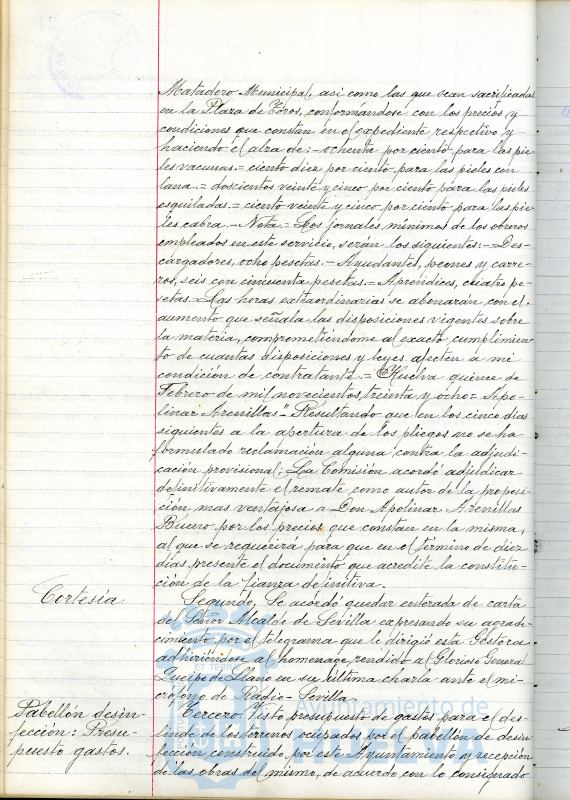 Matadero Municipal, asi como las que sean sacrificadas
en la Plaza de Toros, conformándose con los precios y
condiciones que constan en el expediente respectivo y
haciendo el alza de: - ochenta por ciento para las pie-
les vacunas. = ciento diez por ciento para las pieles con
lana. = doscientos veinte y cinco por ciento para las pieles
esquiladas. = ciento veinte y cinco por ciento para las pie-
les cabra. - Nota = Los jornales mínimos de los obreros
empleados en este servicio, serán los siguientes: - Des-
cargadores, ocho pesetas. - Ayudantes, peones y carre-
ros, seis con cincuenta pesetas. = Aprendices, cuatro pe-
setas. = Las horas extraordinarias se abonarán con el
aumento que señala las disposiciones vigentes sobre
la materia, comprometiéndome al exacto cumplimien-
to de cuantas disposiciones y leyes afecten a mi
condición de contratante. = Huelva quince de
Febrero de mil novecientos treinta y ocho = Apo-
linar Arenillas" - Resultando que en los cinco dias
siguientes a la apertura de los pliegos no se ha
formulado reclamación alguna contra la adjudi-
cación provisional; La Comisión acordó adjudicar
definitivamente el remate como autor de la proposi-
ción mas ventajosa a Don Apolinar Arenillas
Bueno por los precios que constan en la misma,
al que se requerirá para que en el término de diez
dias presente el documento que acredite la constitu-
ción de la fianza definitiva.
Cortesía
Segundo, Se acordó quedar enterada de carta
del Señor Alcalde de Sevilla expresando su agrade-
cimiento por el telegrama que le dirigió esta Gestora
adhiriéndose al homenage rendido al Glorioso General
Queipo de Llano en su última charla ante el mi-
crófono de Radio-Sevilla.
Pabellón desin-
fección: Presu-
puesto gastos.
Tercero. Visto presupuesto de gastos para el des-
linde de los terrenos ocupados por el pabellón de desin-
fección construido por este Ayuntamiento y recepción
de las obras del mismo, de acuerdo con lo consignado
Ayuntamiento de
HUELVA